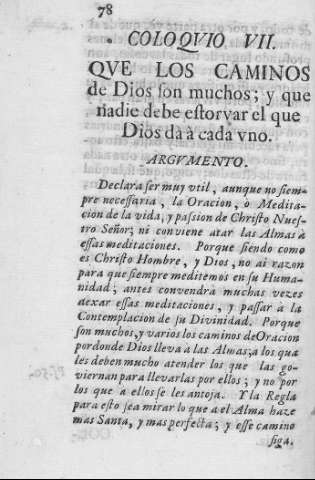 78
COLOQVIO, VII.
QVE LOS CAMINOS
de Dios ſon muchos; y que
nadie debe eſtorvar el que
Dios dà à cada vno.
ARGVMENTO.
Declara ſer muy vtil, aunque no ſiem-
pre neceſſaria, la Oracion, ò Medita-
cion de la vida, y paſsion de Chriſto Nueſ-
tro Señor; ni conviene atar las Almas à
eſſas meditaciones. Porque ſiendo como
es Chriſto Hombre, y Dios, no ai razon
para que ſiempre meditemos en ſu Huma-
nidad; antes convendrà muchas vezes
dexar eſſas meditaciones, y paſſar à la
Contemplacion de ſu Divinidad. Porque
ſon muchos, y varios los caminos de Oracion
por donde Dios lleva à las Almas; a los qua
les deben mucho atender los que las go-
viernan para llevarlas por ellos; y no por
los que a ellos ſe les antoja. Y la Regla
para eſto ſea mirar lo que a el Alma haze
mas Santa, y mas perfecta; y eſſe camino
ſiga.